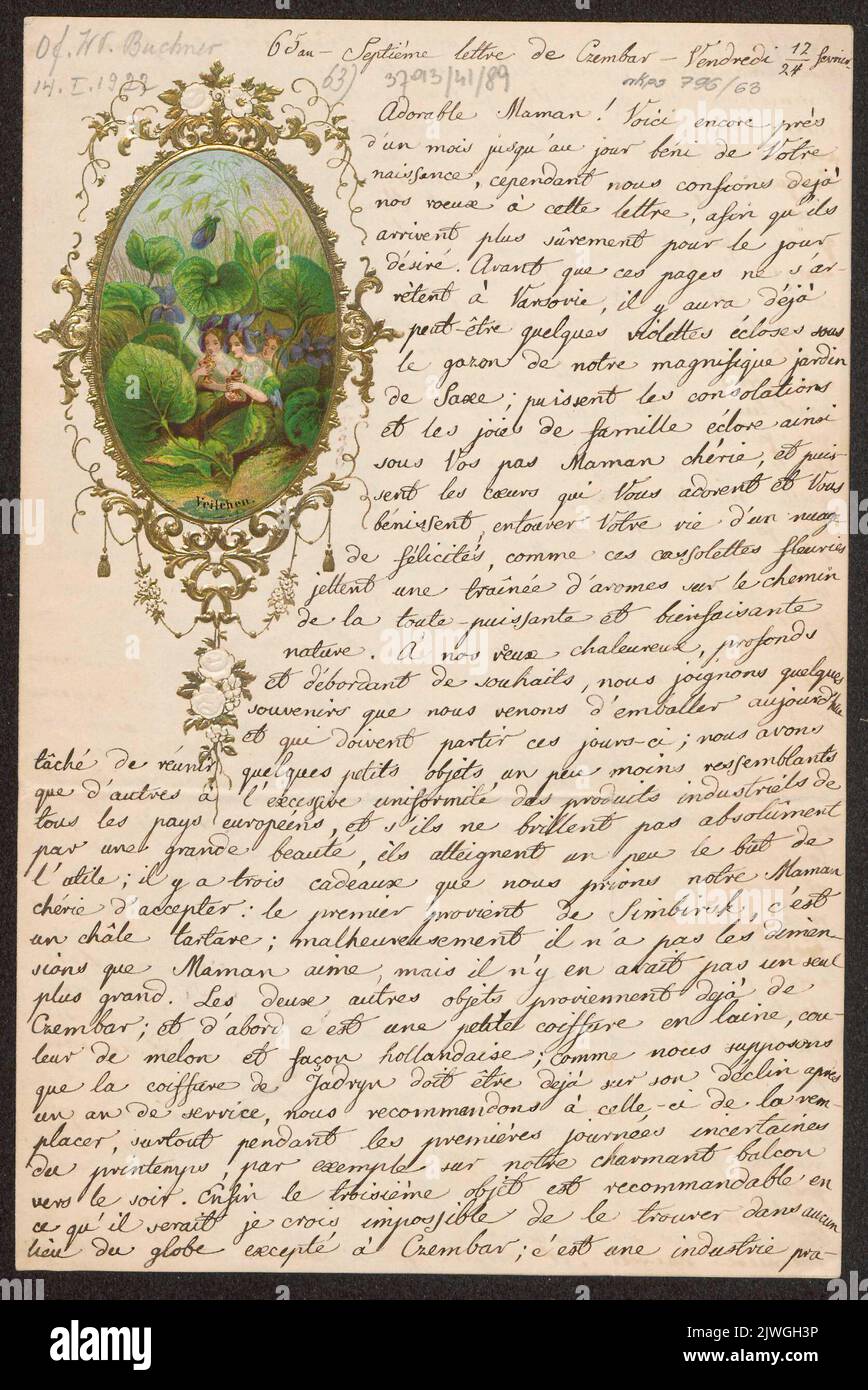 Of. Wł. Buchner
14. I. 1922
63)
3793/41/89
mkps 796/63
65au - Septième lettre de Czembar - Vendredi 12/24 fevrier
Adorable Maman! Voici encore près
d'un mois jusqu'au jour béni de Vôtre
naissance, cependant nous confions dejà
nos voeux à cette lettre, afin qu'ils
arrivent plus sûrement pour le jour
désiré. Avant que ces pages ne s'ar-
rêtent à Varsovie, il y aura déjà
peut-être quelques violettes écloses sous
le gazon de notre magnifique jardin
de Saxe; puissent les consolations
et les joies de famille éclore ainsi
sous Vos pas Maman chérie, et puis-
sent les cœurs qui Vous adorent et Vous
bénissent, entourer Votre vie d'un nuage
de félicités, comme ces cassolettes fleuries
jettent une traînée d'aromes sur le chemin
de la toute-puissante et bienfaisante
nature. A nos vœux chaleureux, profonds
et débordant de souhaits, nous joignons quelques
souvenirs que nous venons d'emballer aujourd'hui
et qui doivent partir ces jours-ci; nous avons
tâché de réunir quelques petits objets un peu moins ressemblants
que d'autres à l'excessive uniformité des produits industriels de
tous les pays européens, et s'ils ne brillent pas absolûment
par une grande beauté, ils atteignent un peu le bût de
l'utile; il y a trois cadeaux que nous prions notre Maman
chérie d'accepter: le premier provient de Simbirsk, c'est
un châle tartare; malheureusement il n'a pas les dimen-
sions que Maman aime, mais il n'y en avait pas un seul
plus grand. Les deux autres objets proviennent dejà de
Czembar; et d'abord c'est une petite coiffure en laine, cou-
leur de melon et façon hollandaise; comme nous supposons
que la coiffure de Jadryn doit être dejà sur son déclin apres
un an de service, nous recommandons à celle-ci de la rem-
placer, surtout pendant les premières journées incertaines
du printemps, par exemple sur notre charmant balcon
vers le soir. Enfin le troisième objet est recommandable en
ce qu'il serait je crois impossible de le trouver dans aucun
lieu du globe excepté à Czembar; c'est une industrie pra-
Veilchen.
alamy
Image ID: 2JWGH3P
www.alamy.com